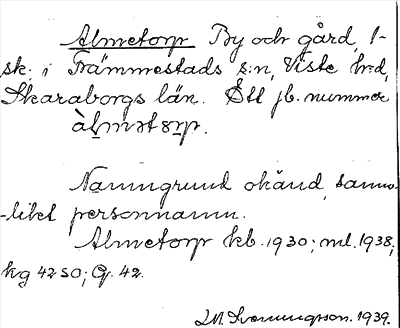 Almetorp By och gård, 1-
sk. i Främmestads s:n, Viste h:d,
Skaraborgs län. Ett jb. nummer
àl̠mət8r̠p.
Namngrund okänd, sanno-
-likt personnamn.
Almetorp kb. 1930; ml. 1938;
kg 4250; G. 42.
1939.